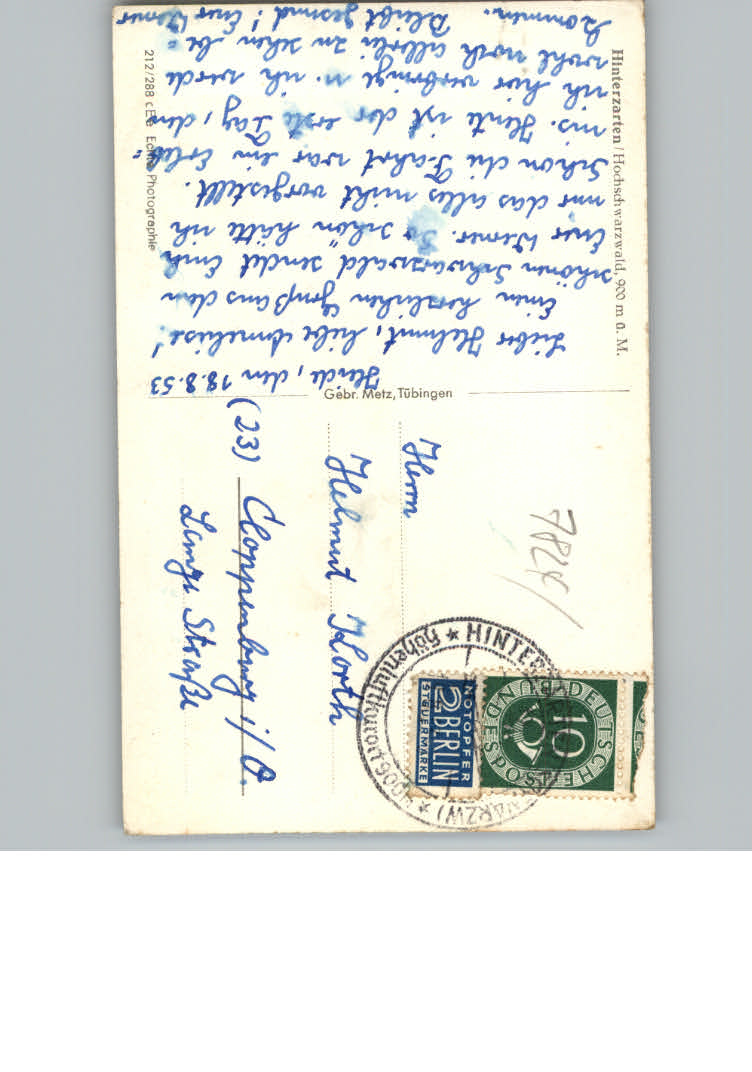 Hinterzarten/Hochschwarzwald, 900 m ü. M.
Heide, den 18.8.53
Lieber Helmut, liebe Anneliese!
Einen herzlichen Gruß aus dem
schönen Schwarzwald sendet Euch
Euer Werner. So schön hätte ich
mir das alles nicht vorgestellt.
Schon die Fahrt war ein Erleb=
nis. Heute ist der erste Tag, den
ich hier verbringe u. ich werde
wohl noch allerlei zu sehen be=
kommen. Bleibt gesund! Euer Werner
212/288 Echte Photographie
Gebr. Metz, Tübingen
Herrn
Helmut Korth
(23) Cloppenburg i/O.
Lange Straße
7824/
NOTOPFER
2 BERLIN
STEUERMARKE
DEUTSCHE BUNDESPOST
10
HINTERZARTEN (SCHWARZW)
Höhenluftkurort 900 m